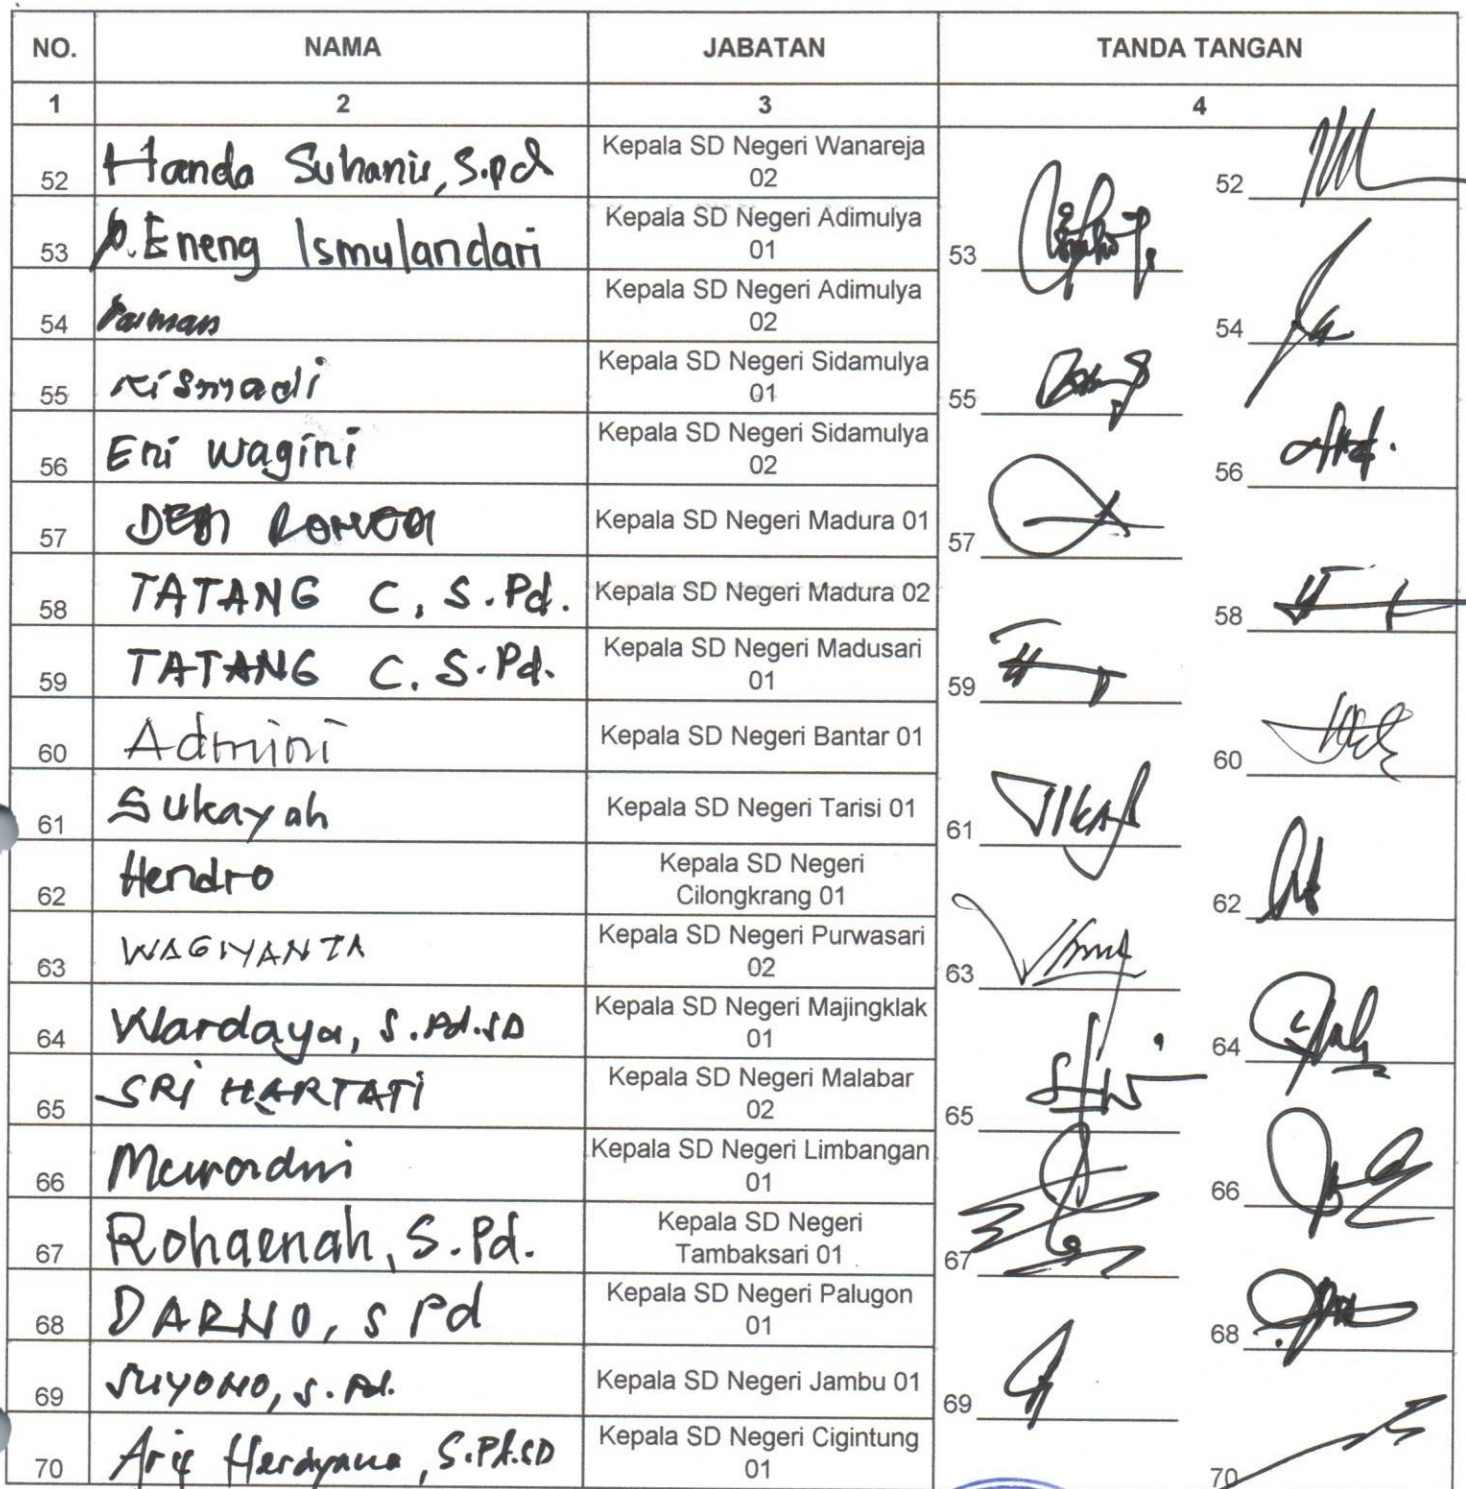 NO. NAMA JABATAN TANDA TANGAN
1 2 3 4
52 Handa Suhanis, S.Pd Kepala SD Negeri Wanareja 02 52
53 Eneng Ismulandari Kepala SD Negeri Adimulya 01 53
54 Paiman Kepala SD Negeri Adimulya 02 54
55 Kismadi Kepala SD Negeri Sidamulya 01 55
56 Eni Wagini Kepala SD Negeri Sidamulya 02 56
57 Kepala SD Negeri Madura 01 57
58 TATANG C, S.Pd. Kepala SD Negeri Madura 02 58
59 TATANG C. S.Pd. Kepala SD Negeri Madusari 01 59
60 Admini Kepala SD Negeri Bantar 01 60
61 Sukayah Kepala SD Negeri Tarisi 01 61
62 Hendro Kepala SD Negeri Cilongkrang 01 62
63 WAGIYANTA Kepala SD Negeri Purwasari 02 63
64 Wardaya, S.Pd.SD Kepala SD Negeri Majingklak 01 64
65 SRI HARTATI Kepala SD Negeri Malabar 02 65
66 Kepala SD Negeri Limbangan 01 66
67 Rohaenah, S.Pd. Kepala SD Negeri Tambaksari 01 67
68 DARNO, S Pd Kepala SD Negeri Palugon 01 68
69 SUYONO, S.Pd. Kepala SD Negeri Jambu 01 69
70 Arif Herdyana, S.Pd.SD Kepala SD Negeri Cigintung 01 70